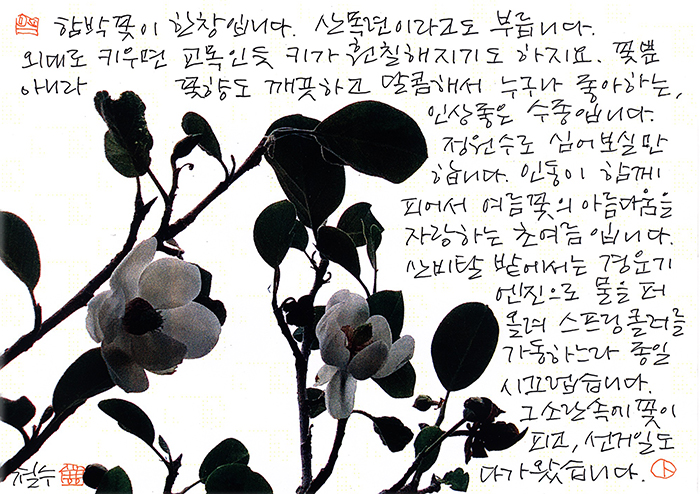 함박꽃이 한창입니다. 산목련이라고도 부릅니다.
외대로 키우면 교목인듯 키가 훤칠해지기도 하지요. 꽃뿐
아니라 꽃향도 깨끗하고 달콤해서 누구나 좋아하는,
인상좋은 수종입니다.
정원수로 심어보실만
합니다. 인동이 함께
피어서 여름꽃의 아름다움을
자랑하는 초여름입니다.
산비탈 밭에서는 경운기
엔진으로 물을 퍼
올려 스프링쿨러를
가동하느라 종일
시끄럽습니다.
그 소란속에 꽃이
피고, 선거일도
다가왔습니다.
철수